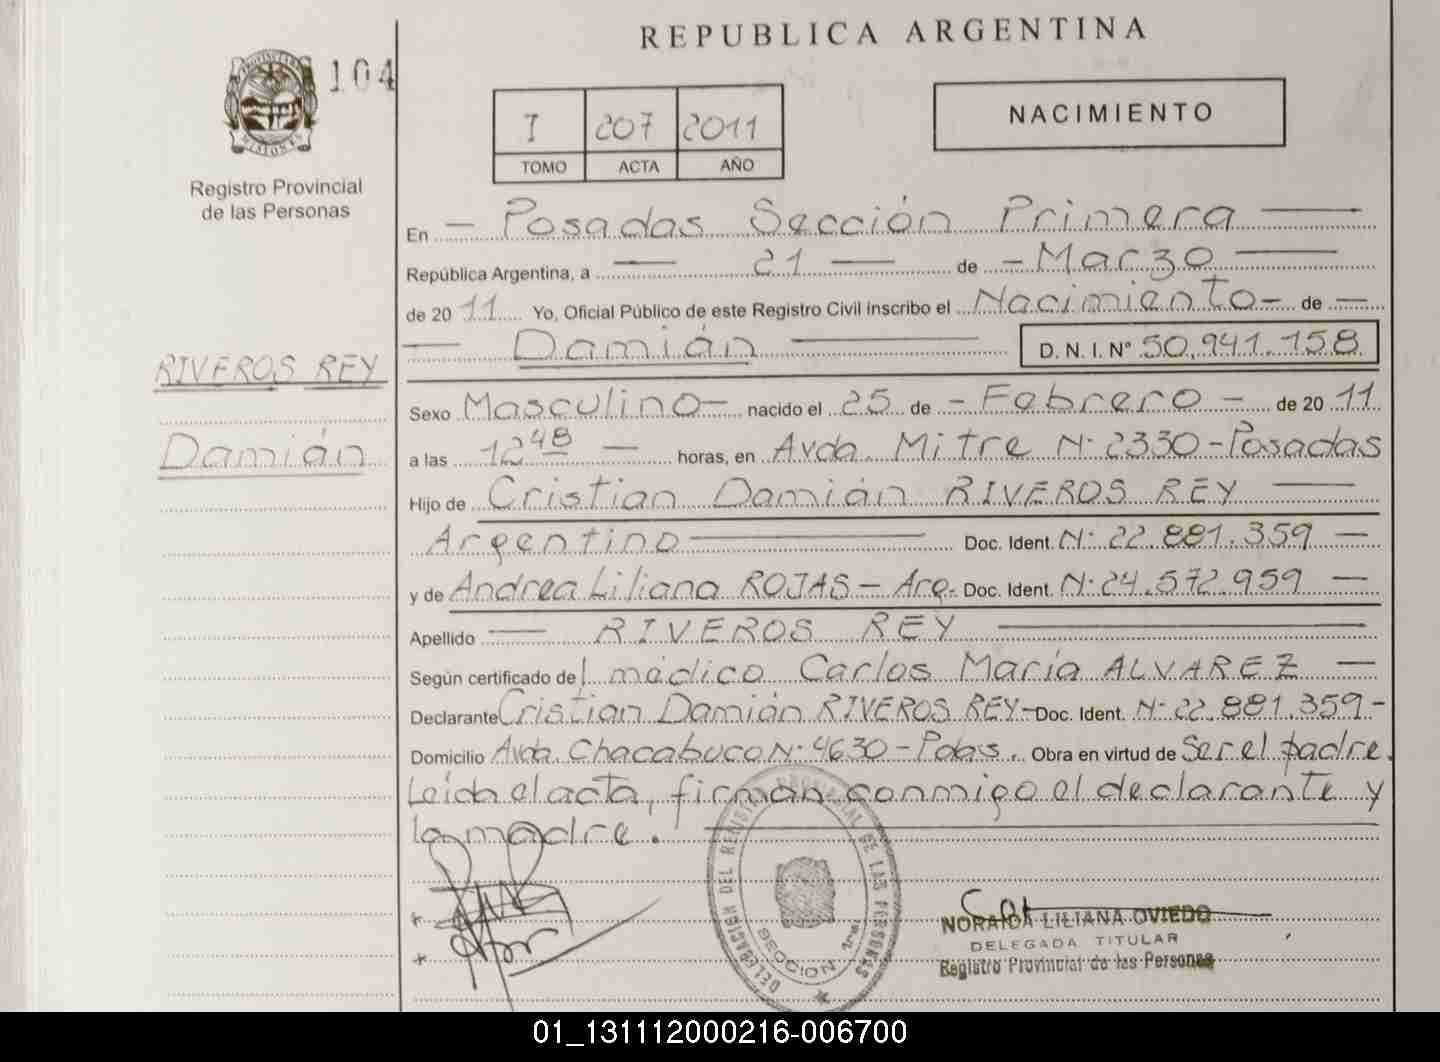 REPUBLICA ARGENTINA
104
PROVINCIA
MISIONES
Registro Provincial
de las Personas
I 207 2011
TOMO ACTA AÑO
NACIMIENTO
En — Posadas Sección Primera —
República Argentina, a — 21 — de — Marzo —
de 2011 Yo, Oficial Público de este Registro Civil inscribo el Nacimiento — de —
— Damián — D. N. I. Nº 50.941.158
RIVEROS REY
Damián
Sexo Masculino — nacido el 25 de — Febrero — de 2011
a las 12 48 — horas, en Avda. Mitre Nº 2330 - Posadas
Hijo de Cristian Damián RIVEROS REY —
Argentino — Doc. Ident. Nº 22.881.359 —
y de Andrea Liliana ROJAS — Arg. Doc. Ident. Nº 24.572.959 —
Apellido — RIVEROS REY —
Según certificado del médico Carlos María ALVAREZ —
Declarante Cristian Damián RIVEROS REY — Doc. Ident. Nº 22.881.359 -
Domicilio Avda. Chacabuco Nº 4630 - Pdas. Obra en virtud de Ser el padre.
Leída el acta, firman conmigo el declarante y
la madre. —
DELEGACION DEL REGISTRO PROVINCIAL DE LAS PERSONAS
SECCION 1ra
NORAIDA LILIANA OVIEDO
DELEGADA TITULAR
Registro Provincial de las Personas
01_131112000216-006700